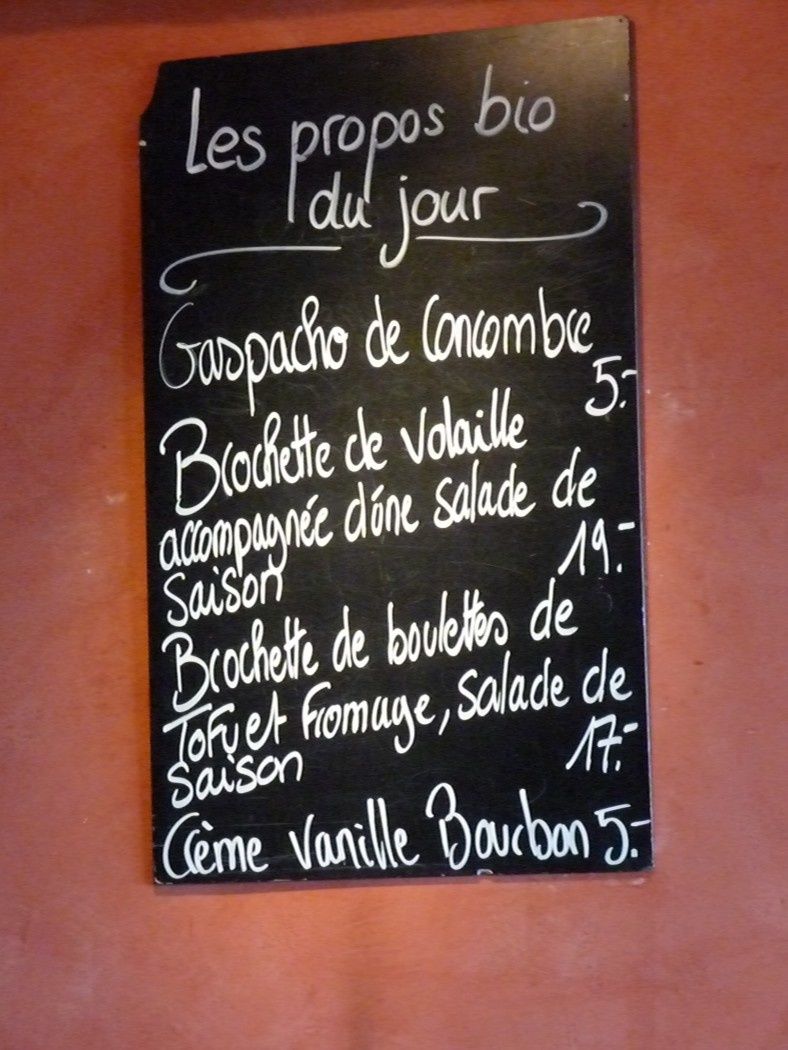 Les propos bio
du jour
Gaspacho de Concombre
5.-
Brochette de volaille
accompagnée d'óne salade de
saison 19.-
Brochette de boulettes de
Tofu et Fromage, salade de
saison 17.-
Crème vanille Bourbon 5.-